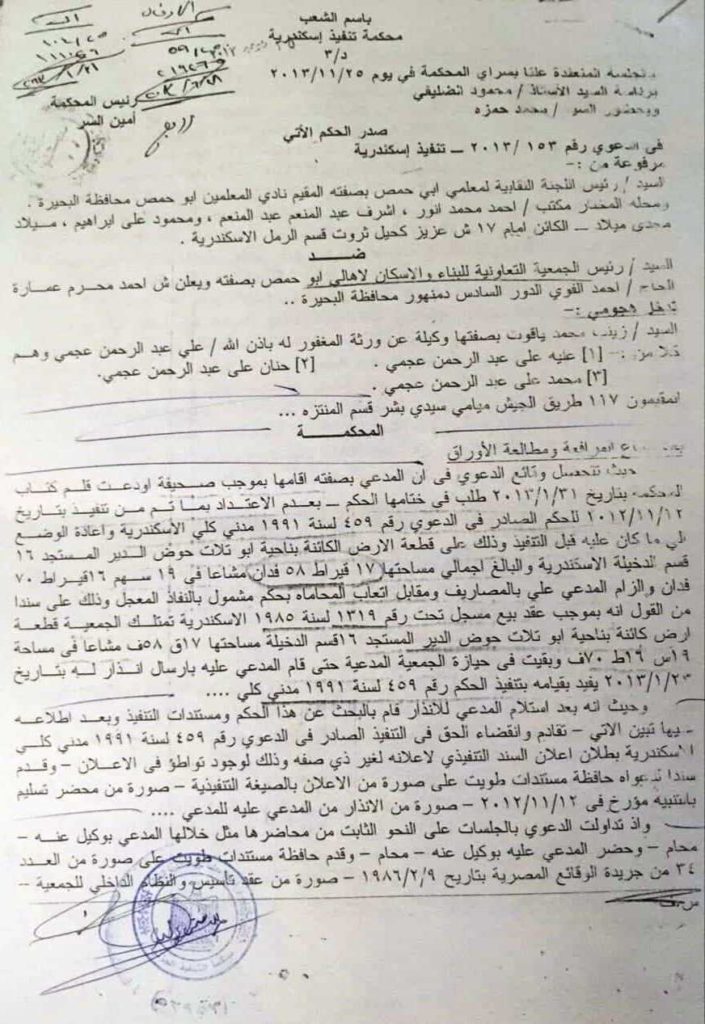 باسم الشعب
محكمة تنفيذ إسكندرية
د/٣
المنعقدة علنا بسراي المحكمة في يوم ٢٠١٣/١١/٢٥
برئاسة السيد الأستاذ / محمود
وبحضور السيد / محمد حمزه
رئيس المحكمة
أمين السر
صدر الحكم الأتي
في الدعوي رقم ١٥٣ /٢٠١٣ ــ تنفيذ إسكندرية
مرفوعة من :-
السيد / رئيس اللجنة النقابية لمعلمي ابي حمص بصفته المقيم نادي المعلمين ابو حمص محافظة البحيرة .
ومحله المختار مكتب / احمد محمد انور ، اشرف عبد المنعم عبد المنعم ، ومحمود على ابراهيم ، ميلاد
مجدى ميلاد ــ الكائن امام ١٧ ش عزيز كحيل ثروت قسم الرمل الاسكندرية .
ضــد
السيد / رئيس الجمعية التعاونية للبناء والاسكان لاهالي ابو حمص بصفته ويعلن ش احمد محرم عمارة
الحاج / احمد الفوي الدور السادس دمنهور محافظة البحيرة ..
تدخل هجومي :-
السيد / زينب محمد ياقوت بصفتها وكيلة عن ورثة المغفور له باذن الله / علي عبد الرحمن عجمي وهم
كلا من :- [١] عليه على عبد الرحمن عجمي . [٢] حنان على عبد الرحمن عجمي.
[٣] محمد على عبد الرحمن عجمي .
المقيمون ١١٧ طريق الجيش ميامي سيدي بشر قسم المنتزه ...
المحكمــــة
المرافعة ومطالعة الأوراق
حيث تتحصل وقائع الدعوي فى ان المدعي بصفته اقامها بموجب صحيفة اودعت قلم كتاب
المحكمة بتاريخ ٢٠١٣/١/٣١ طلب في ختامها الحكم ــ بعدم الاعتداد بما تم من تنفيذ بتاريخ
٢٠١٢/١١/١٢ للحكم الصادر في الدعوي رقم ٤٥٩ لسنة ١٩٩١ مدني كلي الأسكندرية واعادة الوضع
الي ما كان عليه قبل التنفيذ وذلك على قطعة الارض الكائنة بناحية ابو تلات حوض الدير المستجد ١٦
قسم الدخيلة الاسكندرية والبالغ اجمالي مساحتها ١٧ قيراط ٥٨ فدان مشاعا فى ١٩ سهم ١٦قيراط ٧٠
فدان والزام المدعي علي بالمصاريف ومقابل اتعاب المحاماه بحكم مشمول بالنفاذ المعجل وذلك على سندا
من القول انه بموجب عقد بيع مسجل تحت رقم ١٣١٩ لسنة ١٩٨٥ الاسكندرية تمتلك الجمعية قطعة
ارض كائنة بناحية ابو تلات حوض الدير المستجد ١٦قسم الدخيلة مساحتها ١٧ق ٥٨ف مشاعا فى مساحة
١٩س ١٦ط ٧٠ف وبقيت فى حيازة الجمعية المدعية حتى قام المدعي عليه بارسال انذار له بتاريخ
يفيد بقيامه بتنفيذ الحكم رقم ٤٥٩ لسنة ١٩٩١ مدني كلي ....
وحيث انه بعد استلام المدعي للأنذار قام بالبحث عن هذا الحكم ومستندات التنفيذ وبعد اطلاعه
عليها تبين الاتي – تقادم وانقضاء الحق فى التنفيذ الصادر فى الدعوي رقم ٤٥٩ لسنة ١٩٩١ مدني كلي
الاسكندرية بطلان اعلان السند التنفيذي لاعلانه لغير ذي صفه وذلك لوجود تواطؤ فى الاعلان – وقدم
سندا لدعواه حافظة مستندات طويت على صورة من الاعلان بالصيغة التنفيذية – صورة من محضر تسليم
بالتنبية مؤرخ فى ٢٠١٢/١١/١٢ – صورة من الانذار من المدعي عليه للمدعي ....
واذ تداولت الدعوي بالجلسات على النحو الثابت من محاضرها مثل خلالها المدعي بوكيل عنه –
محام – وحضر المدعي عليه بوكيل عنه – محام – وقدم حافظة مستندات طويت على صورة من العدد
٣٤ من جريدة الوقائع المصرية بتاريخ ١٩٨٦/٢/٩ – صورة من عقد تأسيس والنظام الداخلي للجمعية –